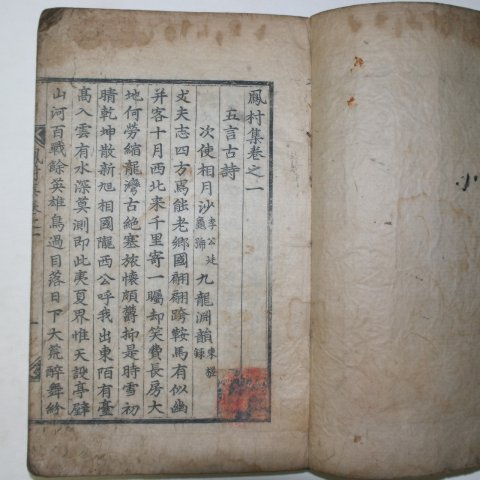 鳳村集卷之一
五言古詩
次使相月沙李公廷龜號九龍淵韻東槎錄
丈夫志四方焉能老鄉國翩翩跨鞍馬有似幽
幷客十月西北來千里寄一矚却笑費長房大
地何勞縮龍灣古絶塞旅懷頗欝抑是時雪初
晴乾坤散新旭相國隴西公呼我出東陌有臺
高入雲有水深莫測即此夷夏界惟天設亭壁
山河百戰餘英雄鳥過目落日下大荒醉舞紛